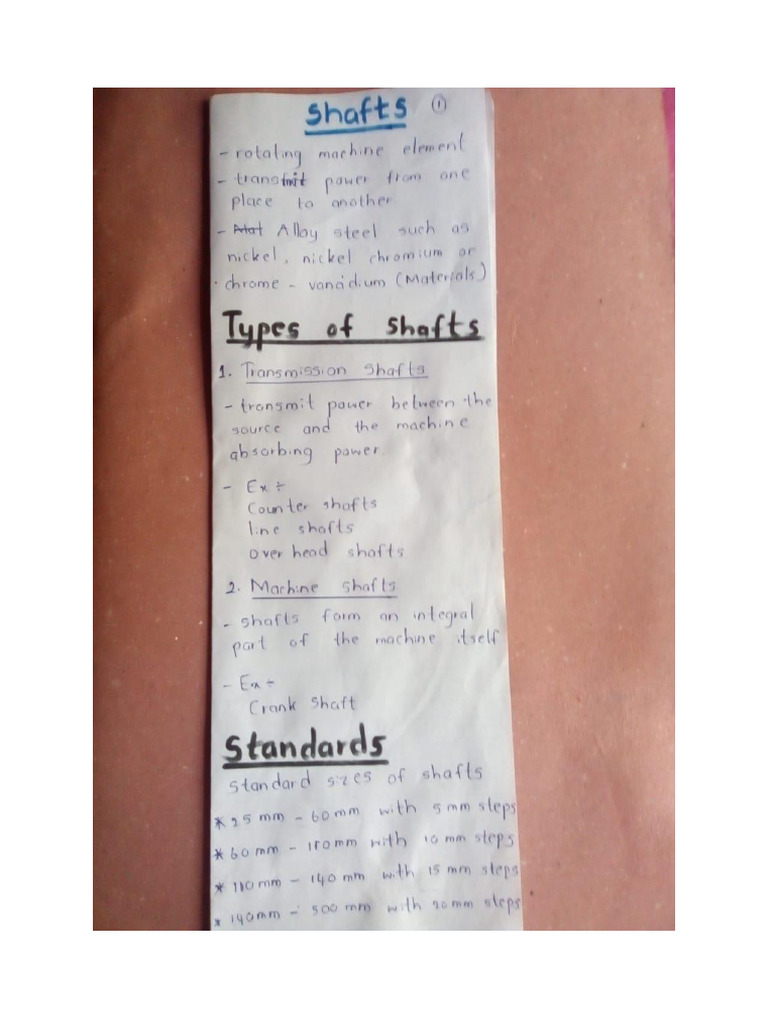 Shafts ①
- rotating machine element
- transmit power from one
place to another
- Mat Alloy steel such as
nickel, nickel chromium or
chrome - vanadium (Materials)
Types of Shafts
1. Transmission Shafts
- transmit power between the
source and the machine
absorbing power.
- Ex ÷
Counter shafts
line shafts
over head shafts
2. Machine shafts
- shafts form an integral
part of the machine itself
- Ex ÷
Crank Shaft
Standards
Standard sizes of shafts
* 25 mm - 60 mm with 5 mm steps
* 60 mm - 110 mm with 10 mm steps
* 110 mm - 140 mm with 15 mm steps
* 140 mm - 500 mm with 20 mm steps